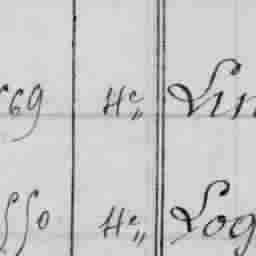 69 Hc„ Lin
550 Hc„ Log